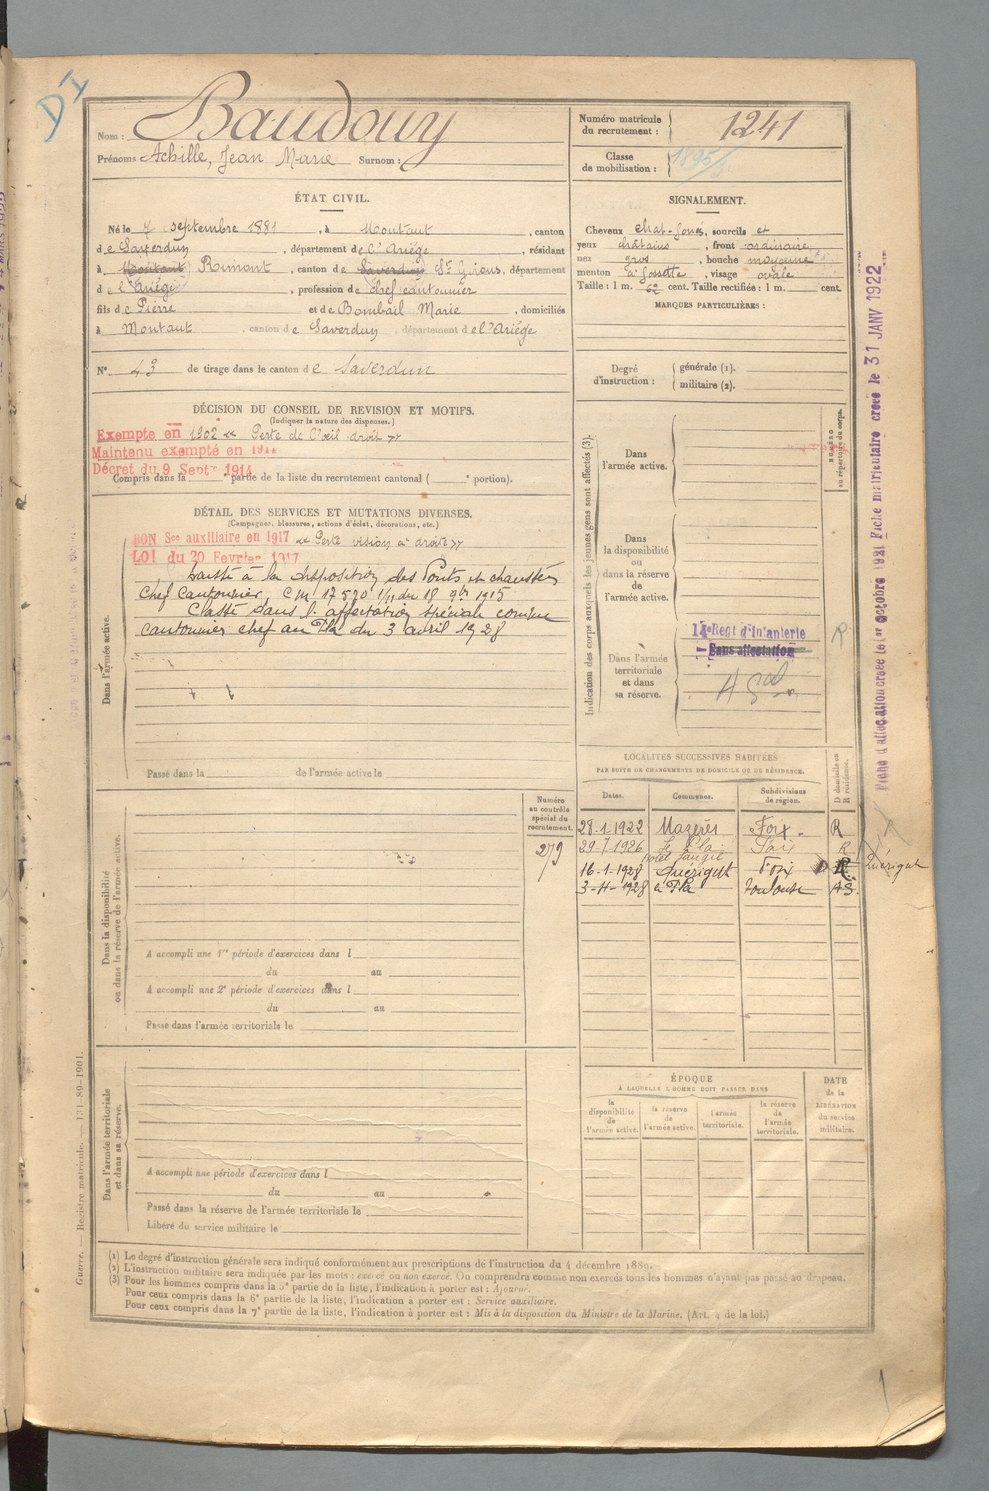 DI
Nom : Baudouy
Prénoms Achille, Jean Marie Surnom :
Numéro matricule du recrutement : 1241
Classe de mobilisation : 1895
ÉTAT CIVIL.
Né le 7 septembre 1881, à Montaut, canton
de Saverdun, département de l'Ariége, résidant
à Montaut Rimont, canton de Saverdun St Girons, département
de l'Ariége, profession de Chef cantonnier
fils de Pierre et de Bombail Marie, domiciliés
à Montaut, canton de Saverdun, département de l'Ariége
N° 43 de tirage dans le canton de Saverdun
SIGNALEMENT.
Cheveux chat-foncés, sourcils et
yeux châtains, front ordinaire,
nez gros, bouche moyenne
menton à fossette, visage ovale
Taille : 1 m. 62 cent. Taille rectifiée : 1 m. cent.
MARQUES PARTICULIÈRES :
Degré d'instruction : générale (1).
militaire (2).
DÉCISION DU CONSEIL DE REVISION ET MOTIFS.
(Indiquer la nature des dispenses.)
Exempté en 1902 « Perte de l'œil droit »
Maintenu exempté en 1914
Décret du 9 Septre 1914
Compris dans la e partie de la liste du recrutement cantonal ( e portion).
DÉTAIL DES SERVICES ET MUTATIONS DIVERSES.
(Campagnes, blessures, actions d'éclat, décorations, etc.)
BON Sce auxiliaire en 1917 « Perte vision à droite »
LOI du 20 Février 1917
Laissé à la disposition des Ponts et chaussées
Chef Cantonnier, CM 17570 1/11 du 18 9bre 1915
Classé dans l'affectation spéciale comme
Cantonnier chef au Pla du 3 avril 1928
Dans l'armée active.
Passé dans la de l'armée active le
Indication des corps auxquels les jeunes gens sont affectés (3).
Dans l'armée active.
NUMÉRO au répertoire du corps.
Dans la disponibilité ou dans la réserve de l'armée active.
Dans l'armée territoriale et dans sa réserve.
14e Regt d'Infanterie
Sans affectation
R
LOCALITÉS SUCCESSIVES HABITÉES
PAR SUITE DE CHANGEMENTS DE DOMICILE OU DE RÉSIDENCE.
Dates. Communes. Subdivisions de région. D domicile ou R résidence.
28-1-1922 Mazères Foix R
29-7-1926 Le Pla Foix R
16-1-1928 Quérigut Foix R Quérigut
3-4-1928 à Pla Toulouse AS.
Numéro au contrôle spécial du recrutement.
279
Dans la disponibilité ou dans la réserve de l'armée active.
A accompli une 1re période d'exercices dans l
du au
A accompli une 2e période d'exercices dans l
du au
Passé dans l'armée territoriale le
Dans l'armée territoriale et dans sa réserve.
A accompli une période d'exercices dans l
du au
Passé dans la réserve de l'armée territoriale le
Libéré du service militaire le
ÉPOQUE
À LAQUELLE L'HOMME DOIT PASSER DANS
la disponibilité de l'armée active.
la réserve de l'armée active.
l'armée territoriale.
la réserve de l'armée territoriale.
DATE de la LIBÉRATION du service militaire.
(1) Le degré d'instruction générale sera indiqué conformément aux prescriptions de l'instruction du 4 décembre 1889.
(2) L'instruction militaire sera indiquée par les mots : exercé ou non exercé. On comprendra comme non exercés tous les hommes n'ayant pas passé au drapeau.
(3) Pour les hommes compris dans la 5e partie de la liste, l'indication à porter est : Ajourné.
Pour ceux compris dans la 6e partie de la liste, l'indication à porter est : Service auxiliaire.
Pour ceux compris dans la 7e partie de la liste, l'indication à porter est : Mis à la disposition du Ministre de la Marine. (Art. 4 de la loi.)
Guerre. — Registre matricule. — 131-89-1901.
Fiche d'allocation créée le 1er octobre 1921 Fiche matriculaire créée le 31 JANV 1922
1